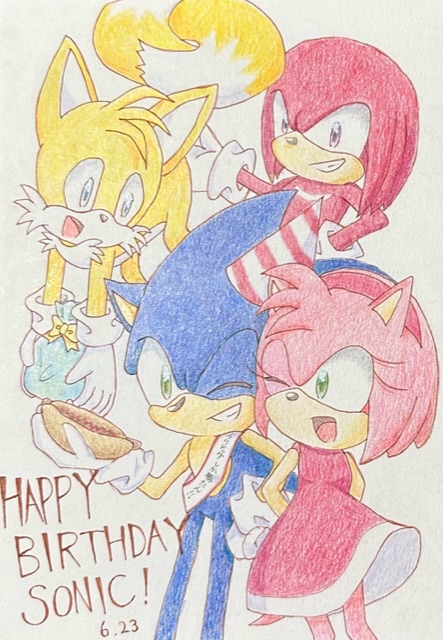 HAPPY
BIRTHDAY
SONIC!
6.23